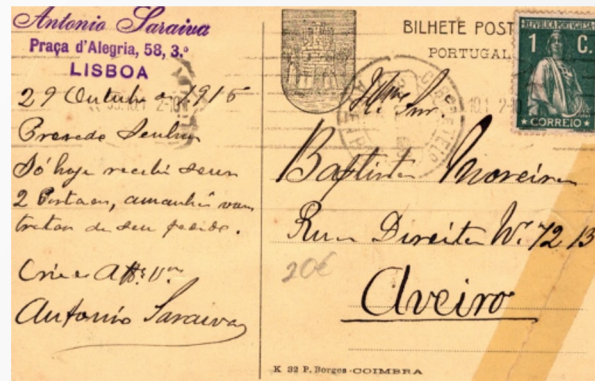 Antonio Saraiva
Praça d'Alegria, 58, 3.º
LISBOA
29 Outubro 1915
Presado Senhor
Só hoje recebi seus
2 Postaes, amanhã vou
tratar do seu pedido.
Antonio Saraiva
BILHETE POST
PORTUGAL
REPUBLICA PORTUGUESA
1 C.
CORREIO
Illmo Snr.
Baptista Moreira
Rua Direita Nº 72 13
Aveiro
20€
K 32 P. Borges - COIMBRA